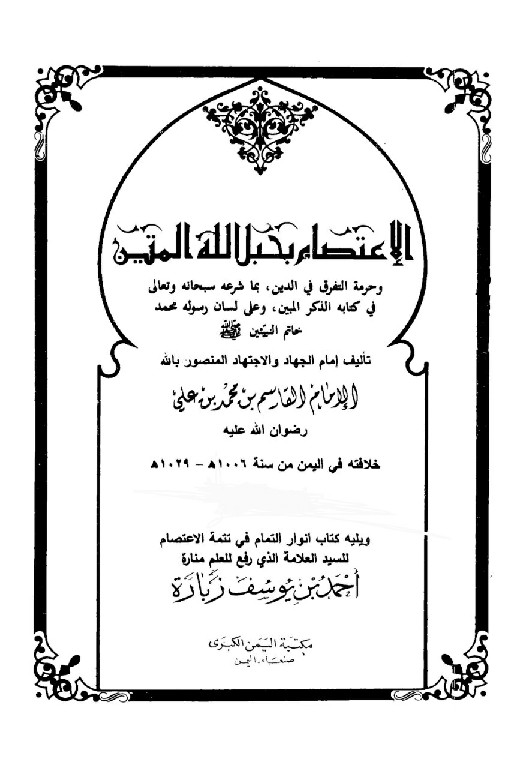 الإعتصام بحبل الله المتين
وحرمة التفرق في الدين، بما شرعه سبحانه وتعالى
في كتابه الذكر المبين، وعلى لسان رسوله محمد
خاتم النبيّين ﷺ
تأليف إمام الجهاد والاجتهاد المنصور بالله
الإمام القاسم بن محمد بن علي
رضوان الله عليه
خلافته في اليمن من سنة ١٠٠٦هـ - ١٠٢٩هـ
ويليه كتاب أنوار التمام في تتمة الاعتصام
للسيد العلامة الذي رفع للعلم منارة
أحمد بن يوسف زبارة
مكتبة اليمن الكبرى
صنعاء - اليمن